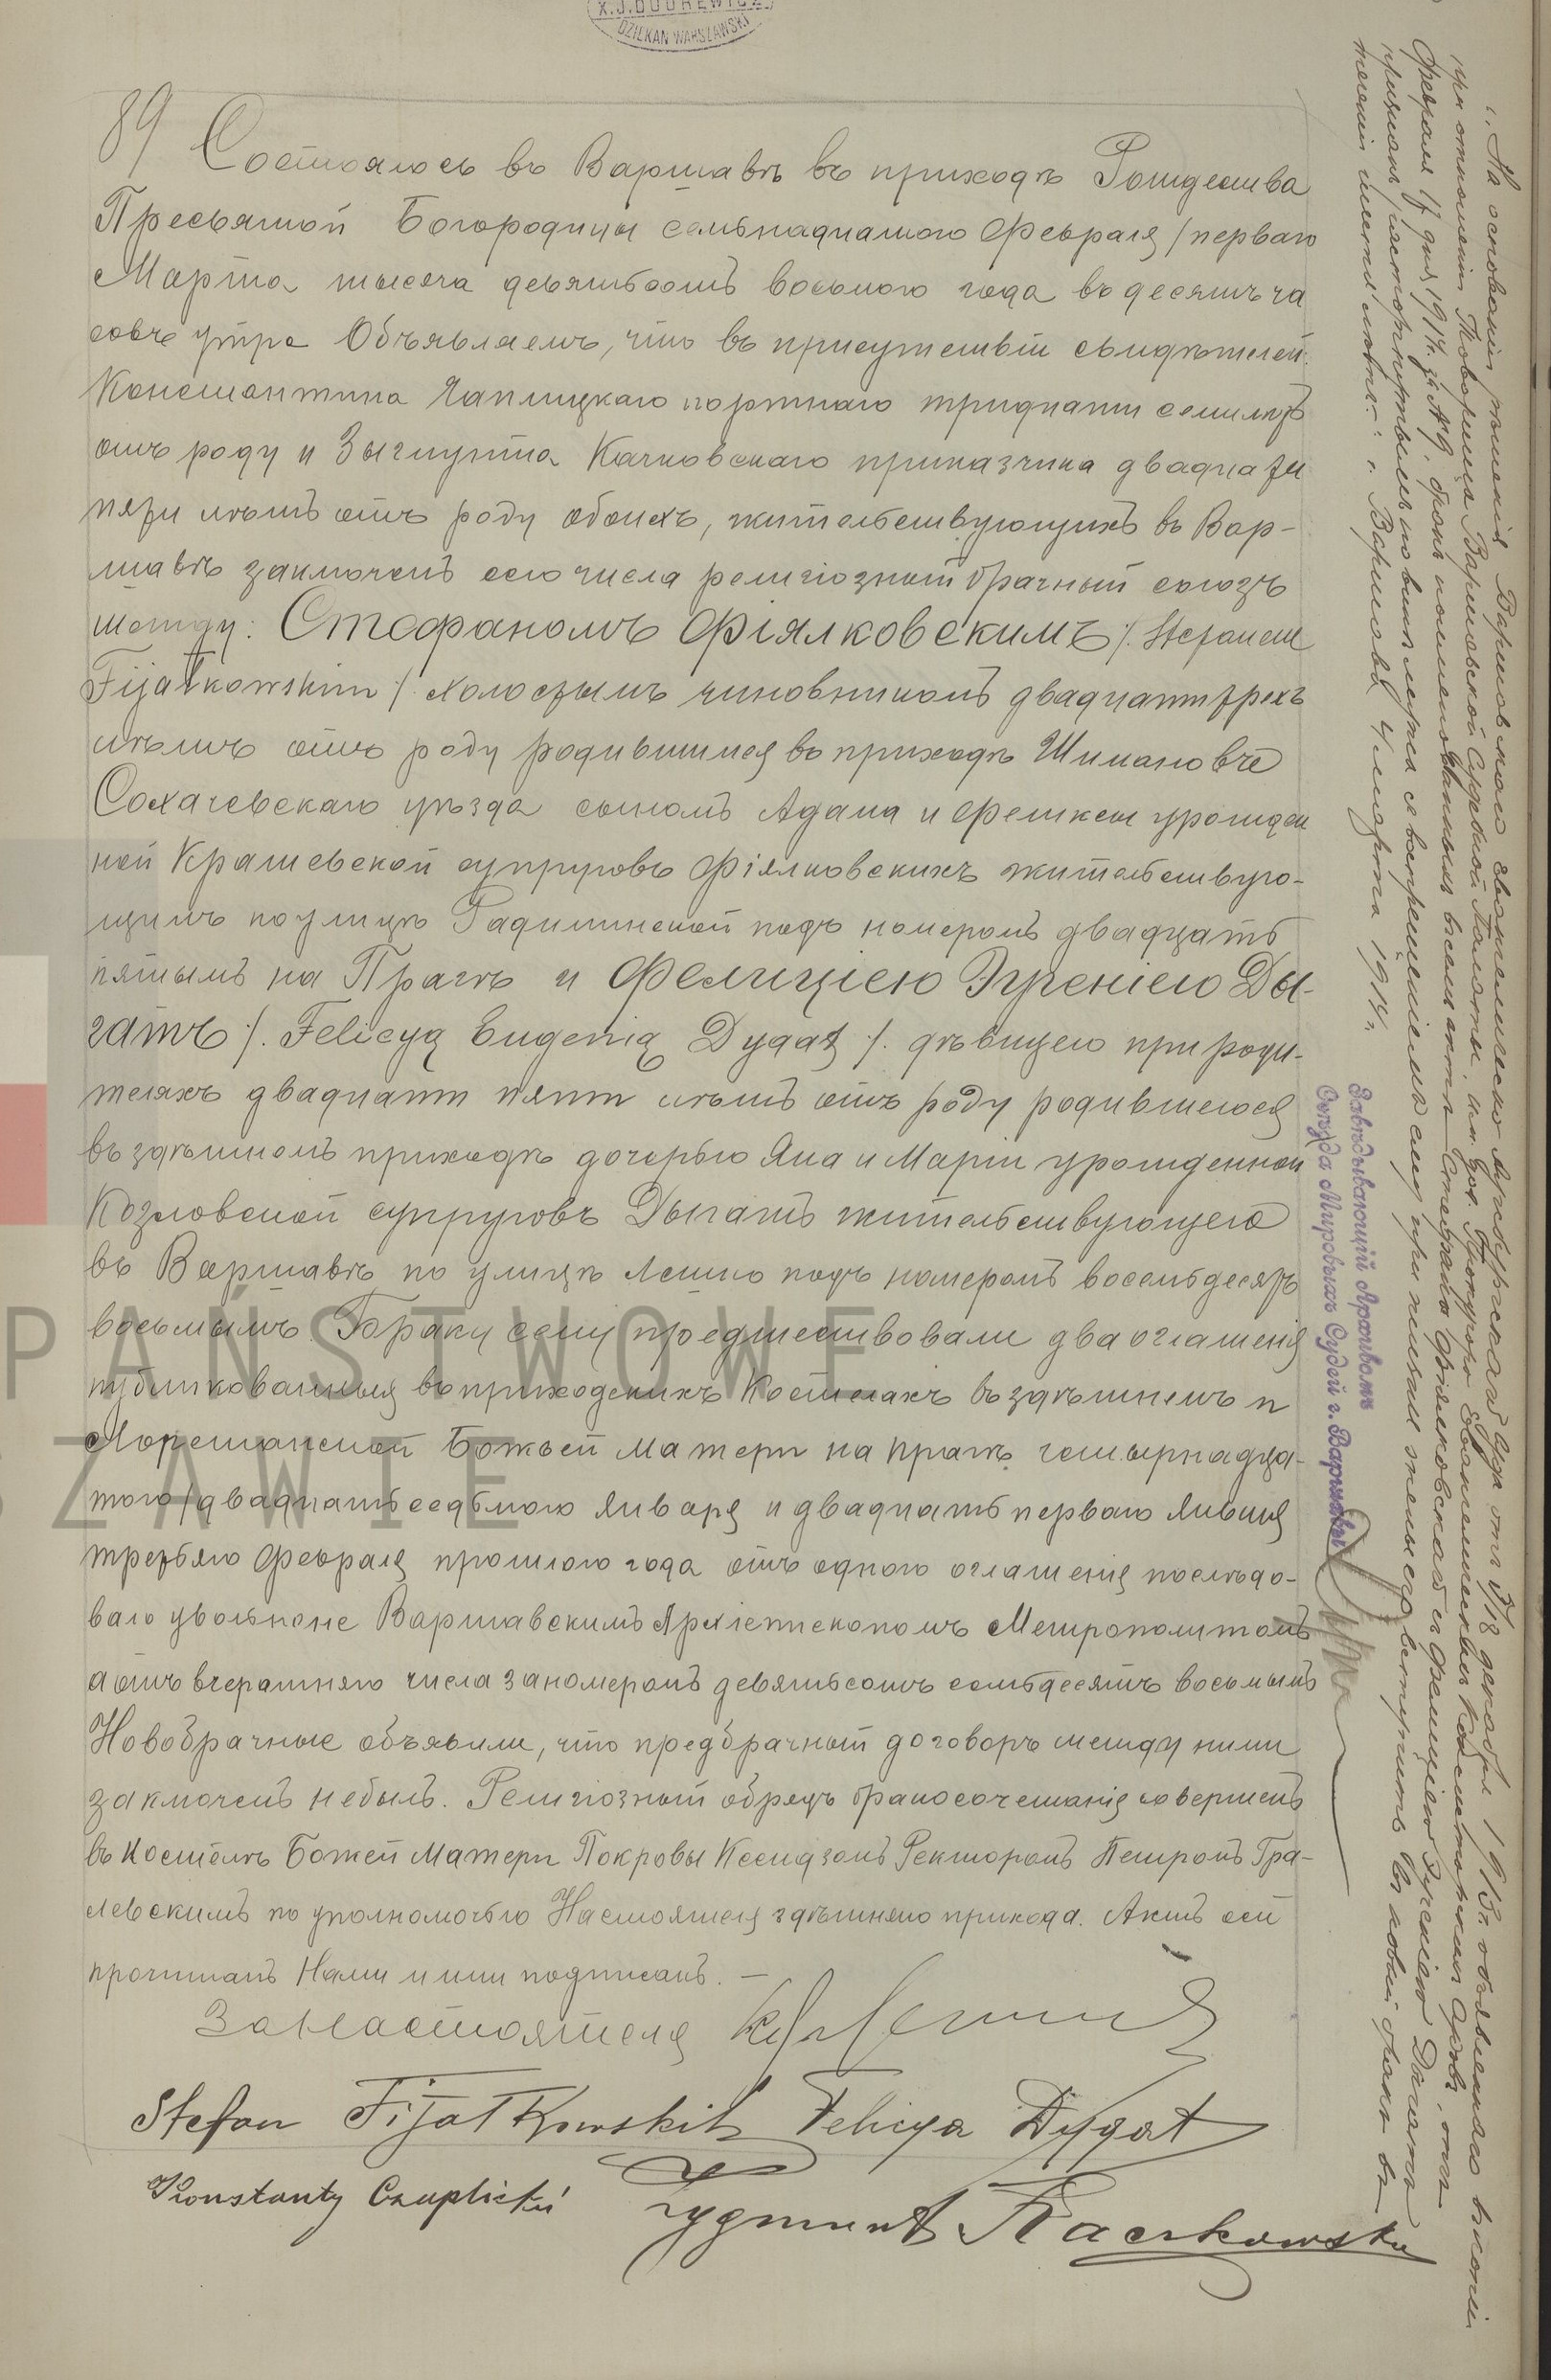 X.J.DUDREWICZ
DZIEKAN WARSZAWSKI
89
Состоялось въ Варшавѣ въ приходѣ Рождества
Пресвятой Богородицы семьнадцатого Февраля / перваго
Марта тысяча девятьсотъ восьмого года въ десять ча
совъ утра Объявляемъ, что въ присутствіи свидѣтелей:
Константина Чаплицкаго портнаго тридцати семи лѣтъ
отъ роду и Зыгмунта Качковскаго приказчика двадцати
пяти лѣтъ отъ роду обоихъ, жительствующихъ въ Вар-
шавѣ заключенъ сего числа религіозный брачный союзъ
между: Стефаномъ Фіялковскимъ /. Stefanem
Fijałkowskim /. холостымъ чиновникомъ двадцати трехъ
лѣтъ отъ роду родившимся въ приходѣ Шимановъ
Сохачевскаго уѣзда сыномъ Адама и Феликсы урожден
ной Крашевской супруговъ Фіялковскихъ жительствую-
щимъ по улицѣ Радиминской подъ номеромъ двадцать
пятымъ на Прагѣ и Фелициею Эугеніею Ды-
гатъ /. Felicyą Eugenią Dygat /. дѣвицею при роди-
теляхъ двадцати пяти лѣтъ отъ роду родившеюся
въ здѣшномъ приходѣ дочерью Яна и Маріи урожденной
Козловской супруговъ Дыгатъ жительствующею
въ Варшавѣ по улицѣ Лешно подъ номеромъ восемьдесятъ
восьмымъ. Браку сему предшествовали два оглашенія
публикованныя въ приходскихъ Костелахъ въ здѣшнемъ и
Лоретанской Божьей Матери на Прагѣ четырнадца-
того / двадцать седьмого Января и двадцать перваго Января
третьяго Февраля прошлого года отъ одного оглашенія послѣдо-
вало увольнене Варшавскимъ Архіепископомъ Митрополитомъ
а отъ вчерашняго числа за номеромъ девятьсотъ семьдесятъ восьмымъ
Новобрачные объявили, что предбрачный договоръ между ними
заключенъ небылъ. Религіозный обрядъ бракосочетанія совершенъ
въ Костелѣ Божей Матери Покровы Ксендзомъ Ректоромъ Петромъ Гра-
левскимъ по уполномочью Настоятеля здѣшняго прихода. Актъ сей
прочитанъ Нами и ими подписанъ. —
За Настоятеля
Stefan Fijałkowski Felicya Dygat
Konstanty Czaplicki
Zygmunt Kaczkowski
На основаніи рѣшенія Варшавскаго Евангелическо Аугсбургскаго Суда отъ 5/18 декабря 1913 г. объявленнаго въ копіи
при отношеніи Товарища Варшавской Судебной Палаты, Прокурора Евангелическихъ Консисторскихъ Судовъ, отъ
Февраля 17 дня 1914 г. за № 9, бракъ поименованныхъ въ семъ актѣ Стефана Фіялковскаго и Фелиціи Эугеніи Дыгатъ
признанъ расторгнутымъ по винѣ мужа съ воспрещеніемъ ему при жизни жены его вступить въ новый бракъ въ
теченіи шести лѣтъ. г. Варшава 4 марта 1914 г.
Завѣдывающій Архивомъ
Съѣзда Мировыхъ Судей г. Варшавы
PAŃSTWOWE
SZAWIE